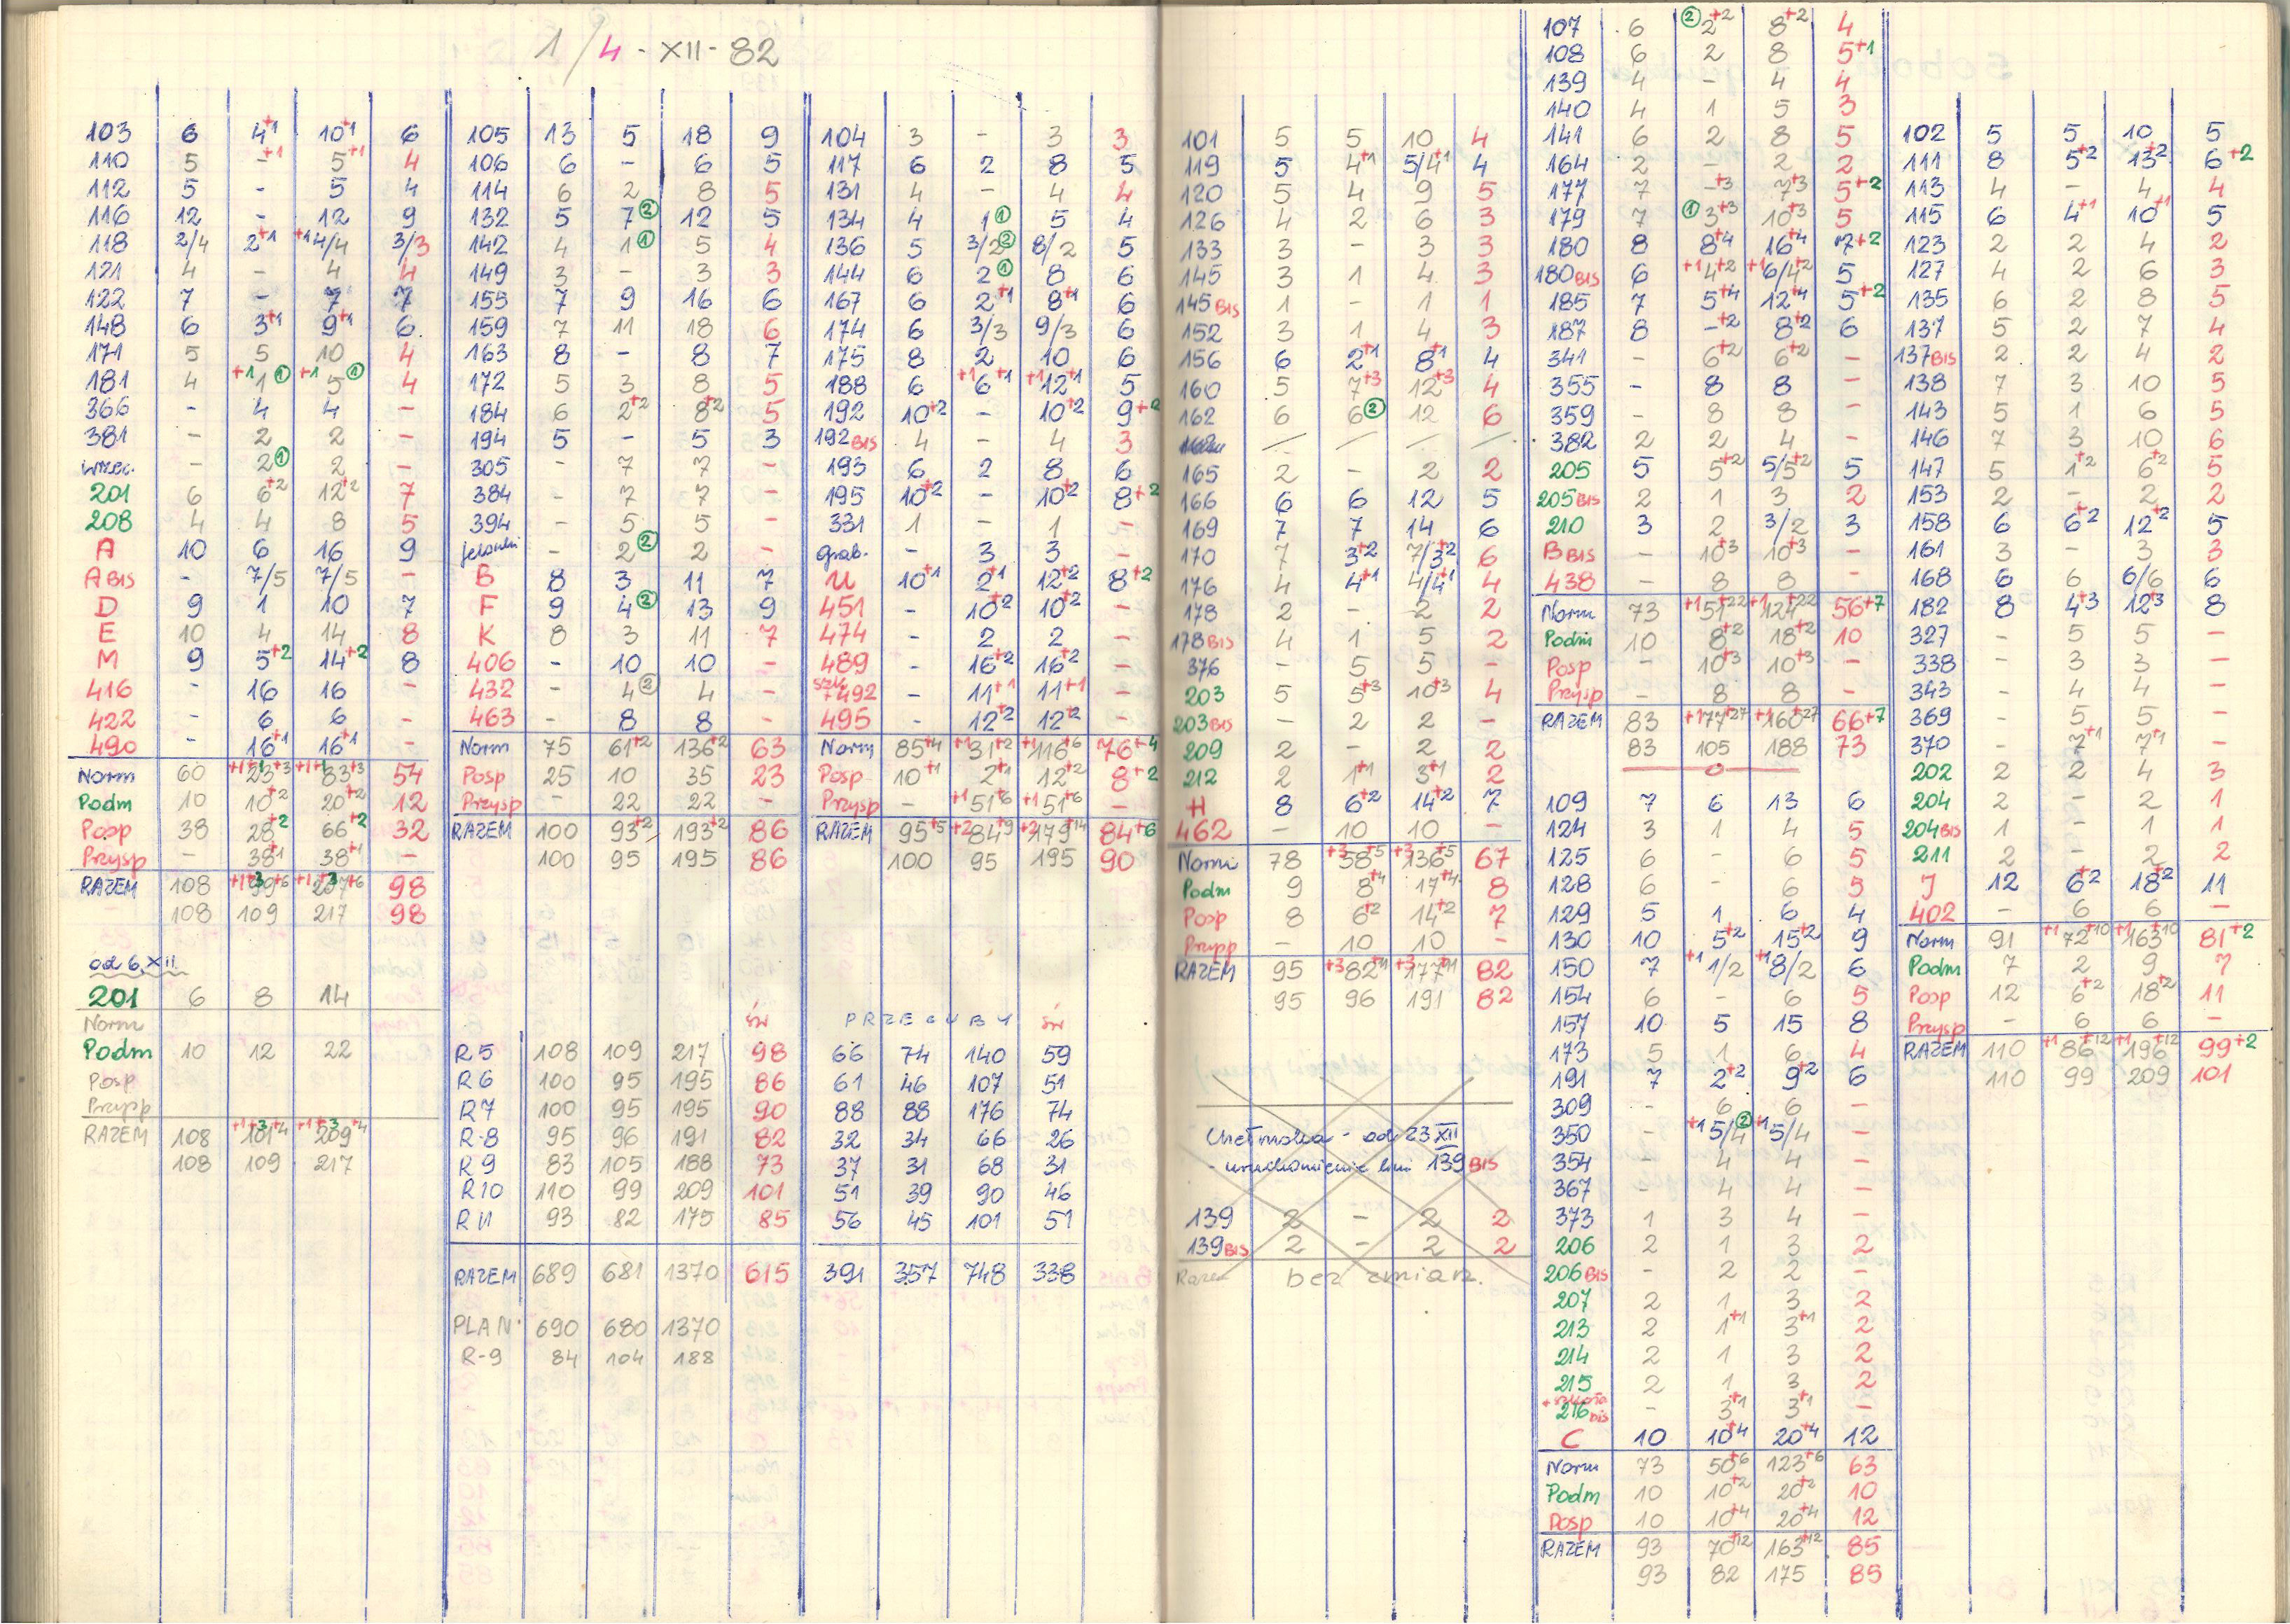 1/4-XII-82
103 6 4+1 10+1 6
110 5 -+1 5+1 4
112 5 - 5 4
116 12 - 12 9
118 2/4 2+1 +14/4 3/3
121 4 - 4 4
122 7 - 7 7
148 6 3+1 9+1 6
171 5 5 10 4
181 4 +11① +15① 4
366 - 4 4 -
381 - 2 2 -
- 2① 2 -
201 6 6+2 12+2 7
208 4 4 8 5
A 10 6 16 9
A BIS - 7/5 7/5 -
D 9 1 10 7
E 10 4 14 8
M 9 5+2 14+2 8
416 - 16 16 -
422 - 6 6 -
490 - 16+1 16+1 -
Norm 60 +1+123+3 +1+183+3 54
Podm 10 10+2 20+2 12
Posp 38 28+2 66+2 32
Przysp - 38+1 38+1 -
RAZEM 108 +1+399+6 +1+3207+6 98
108 109 217 98
od 6.XII.
201 6 8 14
Norm
Podm 10 12 22
Posp
Przysp
RAZEM 108 +1+3101+4 +1+3209+4
108 109 217
105 13 5 18 9
106 6 - 6 5
114 6 2 8 5
132 5 7② 12 5
142 4 1① 5 4
149 3 - 3 3
155 7 9 16 6
159 7 11 18 6
163 8 - 8 7
172 5 3 8 5
184 6 2+2 8+2 5
194 5 - 5 3
305 - 7 7 -
384 - 7 7 -
394 - 5 5 -
jelonki - 2② 2 -
B 8 3 11 7
F 9 4② 13 9
K 8 3 11 7
406 - 10 10 -
432 - 4② 4 -
463 - 8 8 -
Norm 75 61+2 136+2 63
Posp 25 10 35 23
Przysp - 22 22 -
RAZEM 100 93+2 193+2 86
100 95 195 86
104 3 - 3 3
117 6 2 8 5
131 4 - 4 4
134 4 1① 5 4
136 5 3/2② 8/2 5
144 6 2① 8 6
167 6 2+1 8+1 6
174 6 3/3 9/3 6
175 8 2 10 6
188 6 +16+1 +112+1 5
192 10+2 - 10+2 9+2
192 BIS 4 - 4 3
193 6 2 8 6
195 10+2 - 10+2 8+2
331 1 - 1 -
grab. - 3 3 -
U 10+1 2+1 12+2 8+2
451 - 10+2 10+2 -
474 - 2 2 -
489 - 16+2 16+2 -
492 - 11+1 11+1 -
495 - 12+2 12+2 -
Norm 85+4 +131+2 +1116+6 76+4
Posp 10+1 2+1 12+2 8+2
Przysp - +151+6 +151+6 -
RAZEM 95+5 +284+9 +2179+14 84+6
100 95 195 90
św PRZEGUBY św
R5 108 109 217 98 66 74 140 59
R6 100 95 195 86 61 46 107 51
R7 100 95 195 90 88 88 176 74
R-8 95 96 191 82 32 34 66 26
R9 83 105 188 73 37 31 68 31
R10 110 99 209 101 51 39 90 46
R11 93 82 175 85 56 45 101 51
RAZEM 689 681 1370 615 391 357 748 338
PLAN 690 680 1370
R-9 84 104 188
101 5 5 10 4
119 5 4+1 5/4+1 4
120 5 4 9 5
126 4 2 6 3
133 3 - 3 3
145 3 1 4 3
145 BIS 1 - 1 1
152 3 1 4 3
156 6 2+1 8+1 4
160 5 7+3 12+3 4
162 6 6② 12 6
165 2 - 2 2
166 6 6 12 5
169 7 7 14 6
170 7 3+2 7/3+2 6
176 4 4+1 4/4+1 4
178 2 - 2 2
178 BIS 4 1 5 2
376 - 5 5 -
203 5 5+3 10+3 4
203 BIS - 2 2 -
209 2 - 2 2
212 2 1+1 3+1 2
H 8 6+2 14+2 7
462 - 10 10 -
Norm 78 +358+5 +3136+5 67
Podm 9 8+4 17+4 8
Posp 8 6+2 14+2 7
Przysp - 10 10 -
RAZEM 95 +382+11 +3177+11 82
95 96 191 82
Chełmska - od 23 XII
- uruchomienie linii 139 BIS
139 2 - 2 2
139 BIS 2 - 2 2
Razem bez zmian.
107 6 ②2+2 8+2 4
108 6 2 8 5+1
139 4 - 4 4
140 4 1 5 3
141 6 2 8 5
164 2 - 2 2
177 7 -+3 7+3 5+2
179 7 ①3+3 10+3 5
180 8 8+4 16+4 7+2
180 BIS 6 +14+2 +16/4+2 5
185 7 5+4 12+4 5+2
187 8 -+2 8+2 6
341 - 6+2 6+2 -
355 - 8 8 -
359 - 8 8 -
382 2 2 4 -
205 5 5+2 5/5+2 5
205 BIS 2 1 3 2
210 3 2 3/2 3
B BIS - 10+3 10+3 -
438 - 8 8 -
Norm 73 +151+22 +1124+22 56+7
Podm 10 8+2 18+2 10
Posp - 10+3 10+3 -
Przysp - 8 8 -
RAZEM 83 +177+27 +1160+27 66+7
83 105 188 73
0
109 7 6 13 6
124 3 1 4 5
125 6 - 6 5
128 6 - 6 5
129 5 1 6 4
130 10 5+2 15+2 9
150 7 +11/2 +18/2 6
154 6 - 6 5
157 10 5 15 8
173 5 1 6 4
191 7 2+2 9+2 6
309 - 6 6 -
350 - +15/4② +15/4 -
354 - 4 4 -
367 - 4 4 -
373 1 3 4 -
206 2 1 3 2
206 BIS - 2 2 -
207 2 1 3 2
213 2 1+1 3+1 2
214 2 1 3 2
215 2 1 3 2
216 bis - 3+1 3+1 -
C 10 10+4 20+4 12
Norm 73 50+6 123+6 63
Podm 10 10+2 20+2 10
Posp 10 10+4 20+4 12
RAZEM 93 70+12 163+12 85
93 82 175 85
102 5 5 10 5
111 8 5+2 13+2 6+2
113 4 - 4 4
115 6 4+1 10+1 5
123 2 2 4 2
127 4 2 6 3
135 6 2 8 5
137 5 2 7 4
137 BIS 2 2 4 2
138 7 3 10 5
143 5 1 6 5
146 7 3 10 6
147 5 1+2 6+2 5
153 2 - 2 2
158 6 6+2 12+2 5
161 3 - 3 3
168 6 6 6/6 6
182 8 4+3 12+3 8
327 - 5 5 -
338 - 3 3 -
343 - 4 4 -
369 - 5 5 -
370 - 7+1 7+1 -
202 2 2 4 3
204 2 - 2 1
204 BIS 1 - 1 1
211 2 - 2 2
J 12 6+2 18+2 11
402 - 6 6 -
Norm 91 +172+10 +1163+10 81+2
Podm 7 2 9 7
Posp 12 6+2 18+2 11
Przysp - 6 6 -
RAZEM 110 +186+12 +1196+12 99+2
110 99 209 101